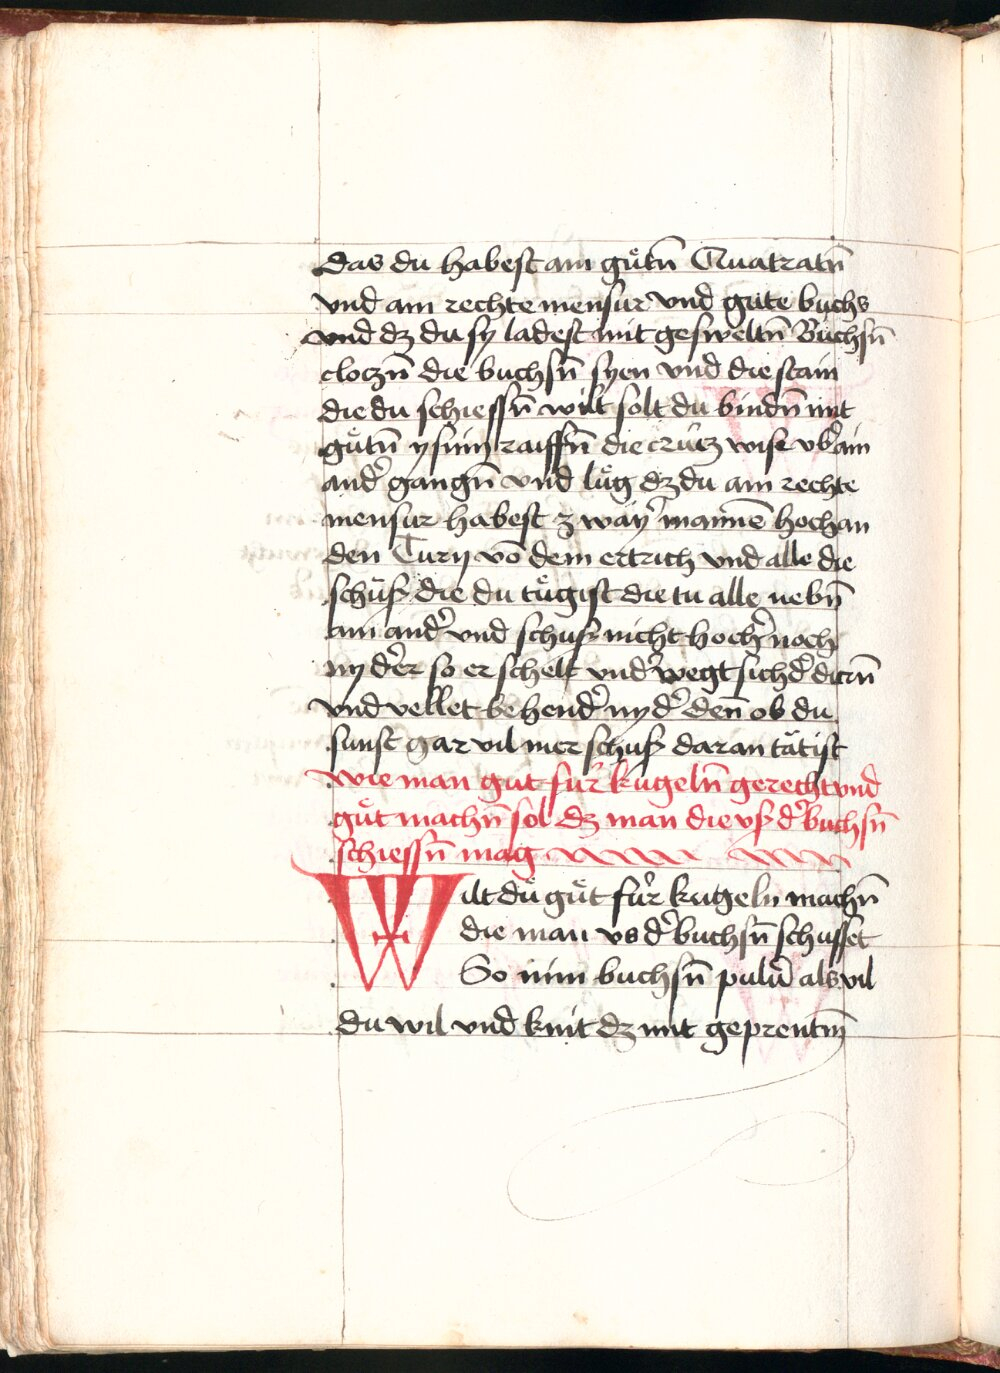 das du habest ain gůtñ Quatratñ
vnd ain rechte mensur vnd gute buchs
vnd dz du sy ladest mit gesweltñ Buchsñ
cloczñ die buchsñ syen vnd die stain
die du schiessñ wilt solt du bindñ mit
gůtñ ysnin raiffñ die crútz wise vb̾ ain
and̾ gangñ vnd lůg dz du ain rechte
mensur habest zway̾ mannē hoch an
den Turn vō dem ertrich vnd alle die
schúß die du tůgist die tu alle nebñ
ain and̾ vnd schuß nicht hoch̾ noch
nyd̾er so er schelt vnd̾ wegt sich d̾
vnd vellet behend̾ nyd̾ deñ ob du
sunst gar vil mer schuß daran tåtist
wie man gut fúr kugelñ gerecht vnd
gůt machñ sol dz man die vß d̾ buchsñ
schiessñ mag
Wilt du gůt fúr kugeln machñ
die man vs d̾ buchsñ schusset
So nim buchsñ pulũ als vil
du wil vnd knit dz mit geprentm̃